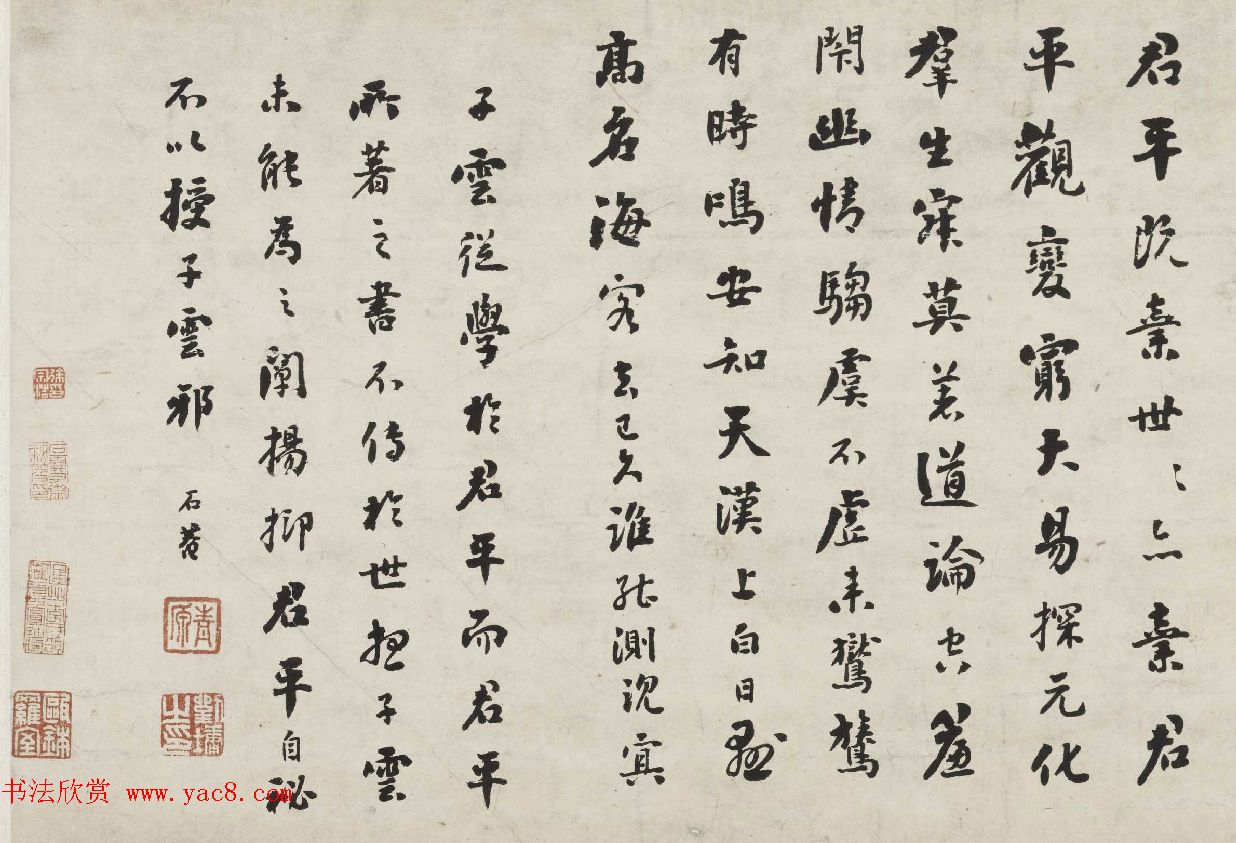 君平既棄世〻亦棄君
平觀變窮大易探元化
羣生寂莫著道論空簾
閉幽情騶虞不虛來鸑鷟
有時鳴安知天漢上白日懸
高名海客去已久誰能測沉冥
子雲從學於君平而君平
所著之書不傳於世抑子雲
未能為之闡揚抑君平自祕
不以授子雲邪
石菴
青原
劉墉之印
甌鉢羅室
书法欣赏 www.yac8.com